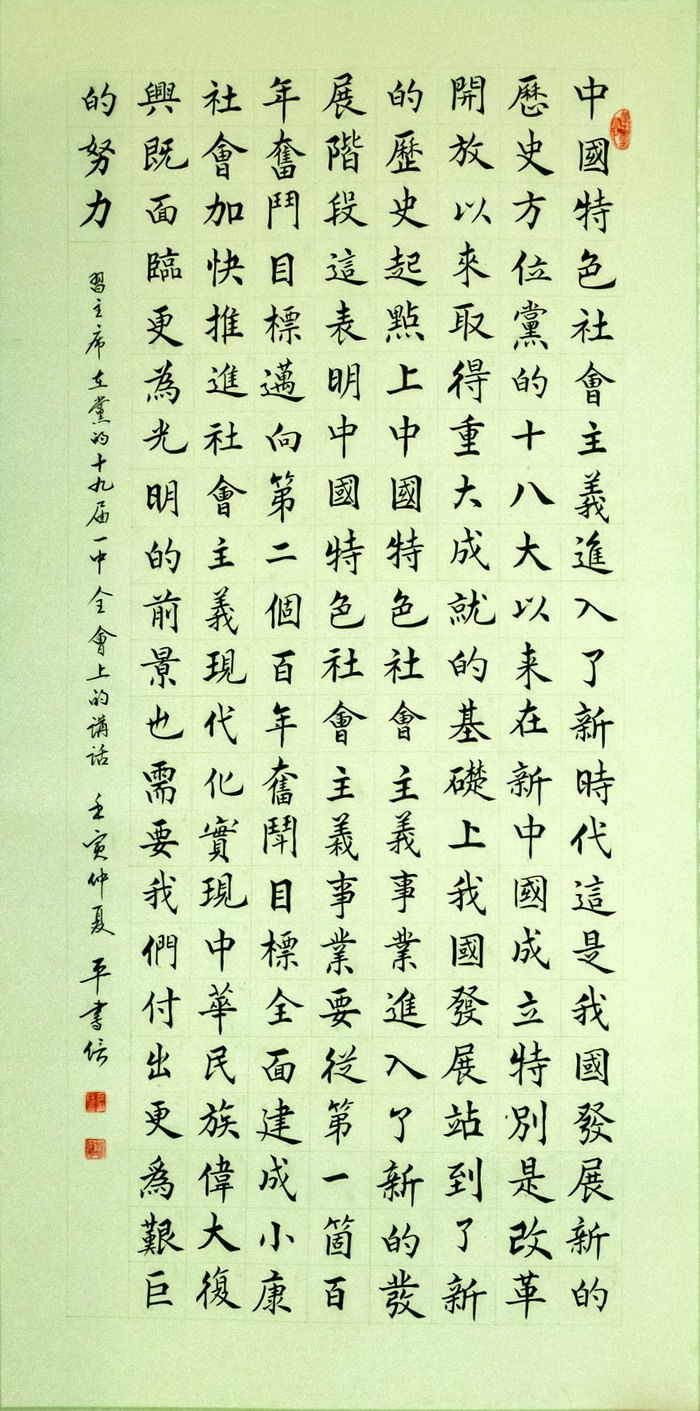 中國特色社會主義進入了新時代這是我國發展新的
歷史方位黨的十八大以来在新中國成立特別是改革
開放以來取得重大成就的基礎上我國發展站到了新
的歷史起點上中國特色社會主義事業進入了新的發
展階段這表明中國特色社會主義事業要從第一箇百
年奮鬥目標邁向第二個百年奮鬪目標全面建成小康
社會加快推進社會主義現代化實現中華民族偉大復
興既面臨更為光明的前景也需要我們付出更爲艱巨
的努力
習主席在黨的十九届一中全會上的講話 壬寅仲夏 平書信